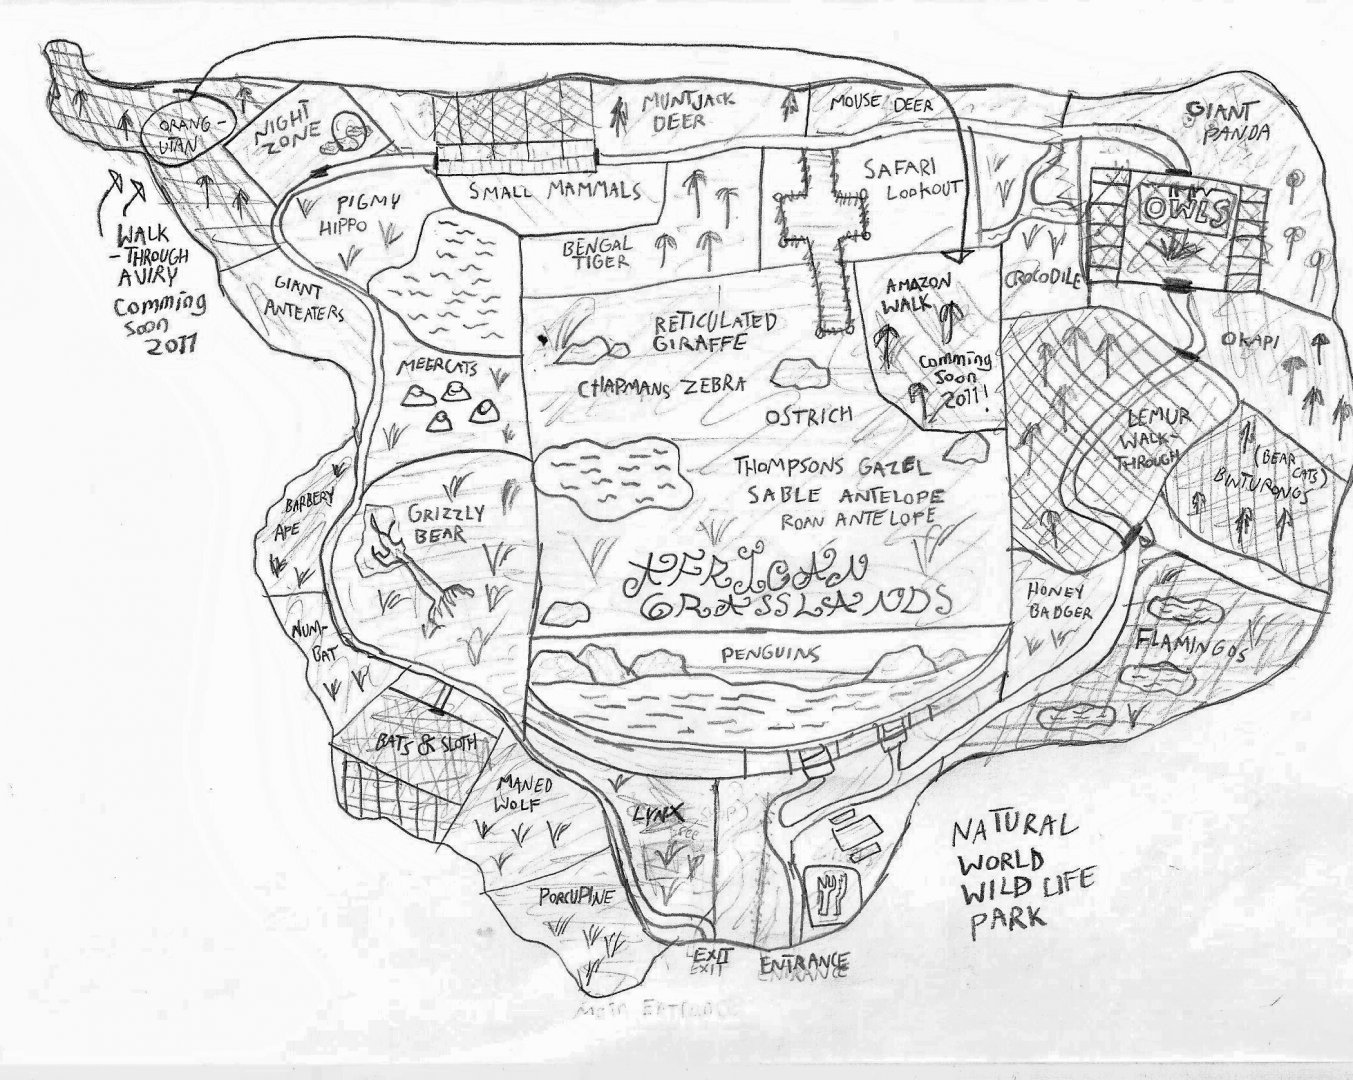 MUNTJACK
DEER
MOUSE DEER
GIANT
PANDA
ORANG-
UTAN
NIGHT
ZONE
SAFARI
LOOKOUT
SMALL MAMMALS
PIGMY
HIPPO
OWLS
WALK
-THROUGH
AVIRY
Comming
Soon
2011
BENGAL
TIGER
CROCODILE
GIANT
ANTEATERS
AMAZON
WALK
Comming
Soon
2011!
RETICULATED
GIRAFFE
OKAPI
MEERCATS
CHAPMANS ZEBRA
OSTRICH
LEMUR
WALK-
THROUGH
(BEAR
CATS)
BINTURONGS
THOMPSONS GAZEL
SABLE ANTELOPE
ROAN ANTELOPE
BARBERY
APE
GRIZZLY
BEAR
AFRICAN
GRASSLANDS
HONEY
BADGER
NUM-
BAT
PENGUINS
FLAMINGOS
BATS & SLOTH
MANED
WOLF
LYNX
NATURAL
WORLD
WILD LIFE
PARK
PORCUPINE
EXIT
EXIT
ENTRANCE
ENTRANCE
MAIN ENTRANCE